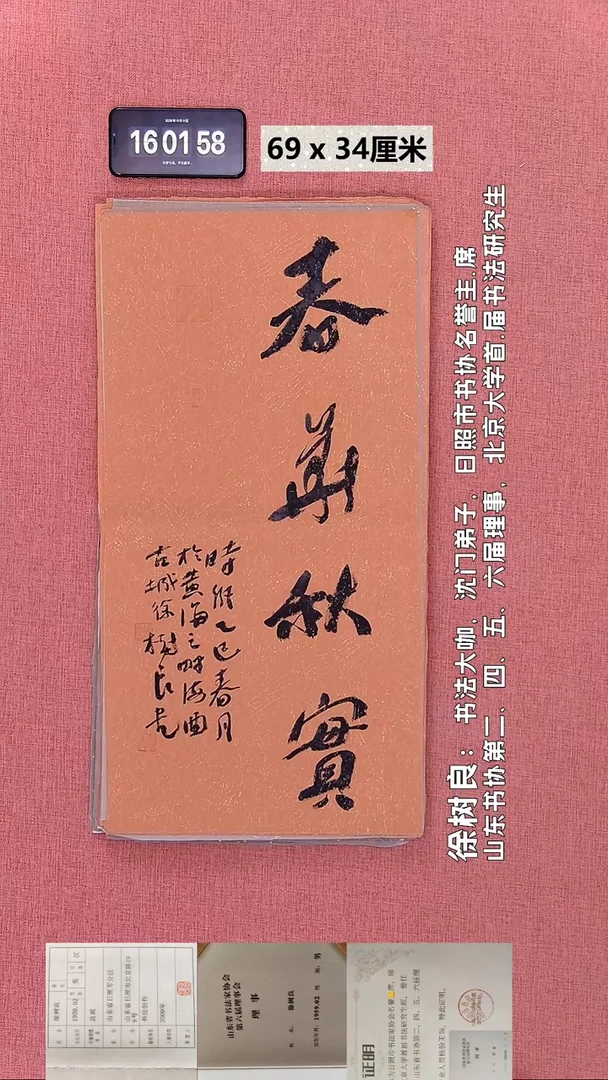 16 01 58
69 x 34厘米
春華秋實
時維乙巳春月
於黄海之畔海曲
古城徐樹良書
徐树良：书法大咖，沈门弟子，日照市书协名誉主.席
山东书协第二、四、五、六届理事，北京大学首.届书法研究生
徐树良
1959.02
汉
山东省日照军分区
书法创作
2009年
山东省书法家协会
第六届理事会
理事
徐树良
男
1959.02
证明